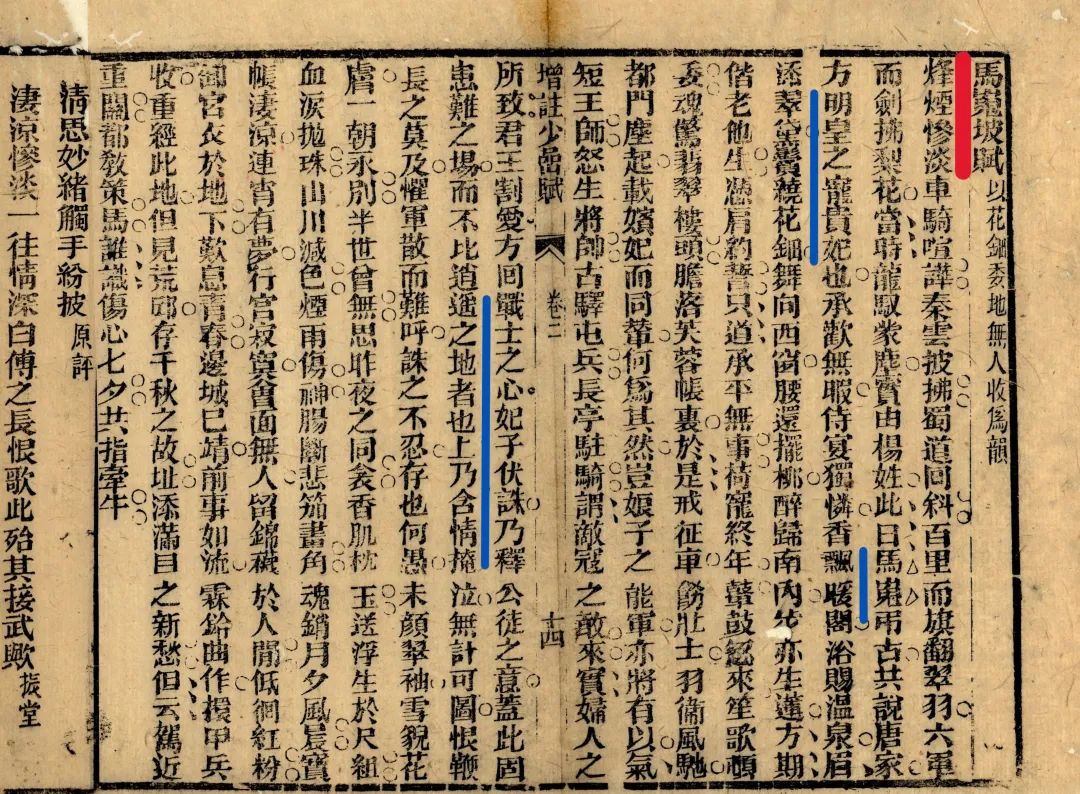 馬嵬坡賦 以花鈿委地無人收爲韻
烽煙慘淡車騎喧譁秦雲披拂蜀道回斜百里而旗翻翠羽六軍
而劍拂梨花當時龍馭蒙塵實由楊姓此日馬嵬弔古共說唐家
方明皇之寵貴妃也承歡無暇侍宴獨憐香飄暖閣浴賜溫泉眉
添翠黛鬢繞花鈿舞向西窗腰還擺柳醉歸南內步亦生蓮方期
偕老他生憑肩約誓只道承平無事椅寵終年鼙鼓忽來笙歌頓
委魂驚翡翠樓頭膽落芙蓉帳裏於是戒征車飭壯士羽衞風馳
都門塵起載嬪妃而同輦何爲其然豈娘子之能軍亦將有以氣
短王師怒生將帥古驛屯兵長亭駐騎謂敵寇之敵來實婦人之
增註少嵒賦 卷二 十四
所致君王割愛方回戰士之心妃子伏誅乃釋公徒之意蓋此固
患難之場而不比逍遙之地者也上乃含情掩泣無計可圖恨鞭
長之莫及懼軍散而難呼誅之不忍存也何愚未顏翠袖雪貌花
膚一朝永別半世曾無思昨夜之同衾香肌枕玉送浮生於尺組
血淚拋珠山川減色煙雨傷神腸斷悲笳畫角魂銷月夕風晨寶
帳淒涼連宵有夢行宮寂寞會面無人留錦襪於人間低徊紅粉
卸宮衣於地下歎息青春邊城已靖前事如流霖鈴曲作擐甲兵
收重經此地但見荒邱存千秋之故址添滿目之新愁但云駕近
重闈都教策馬誰識傷心七夕共指牽牛
清思妙緒觸手紛披 原評
淒涼慘淡一往情深白傅之長恨歌此殆其接武歟 振堂